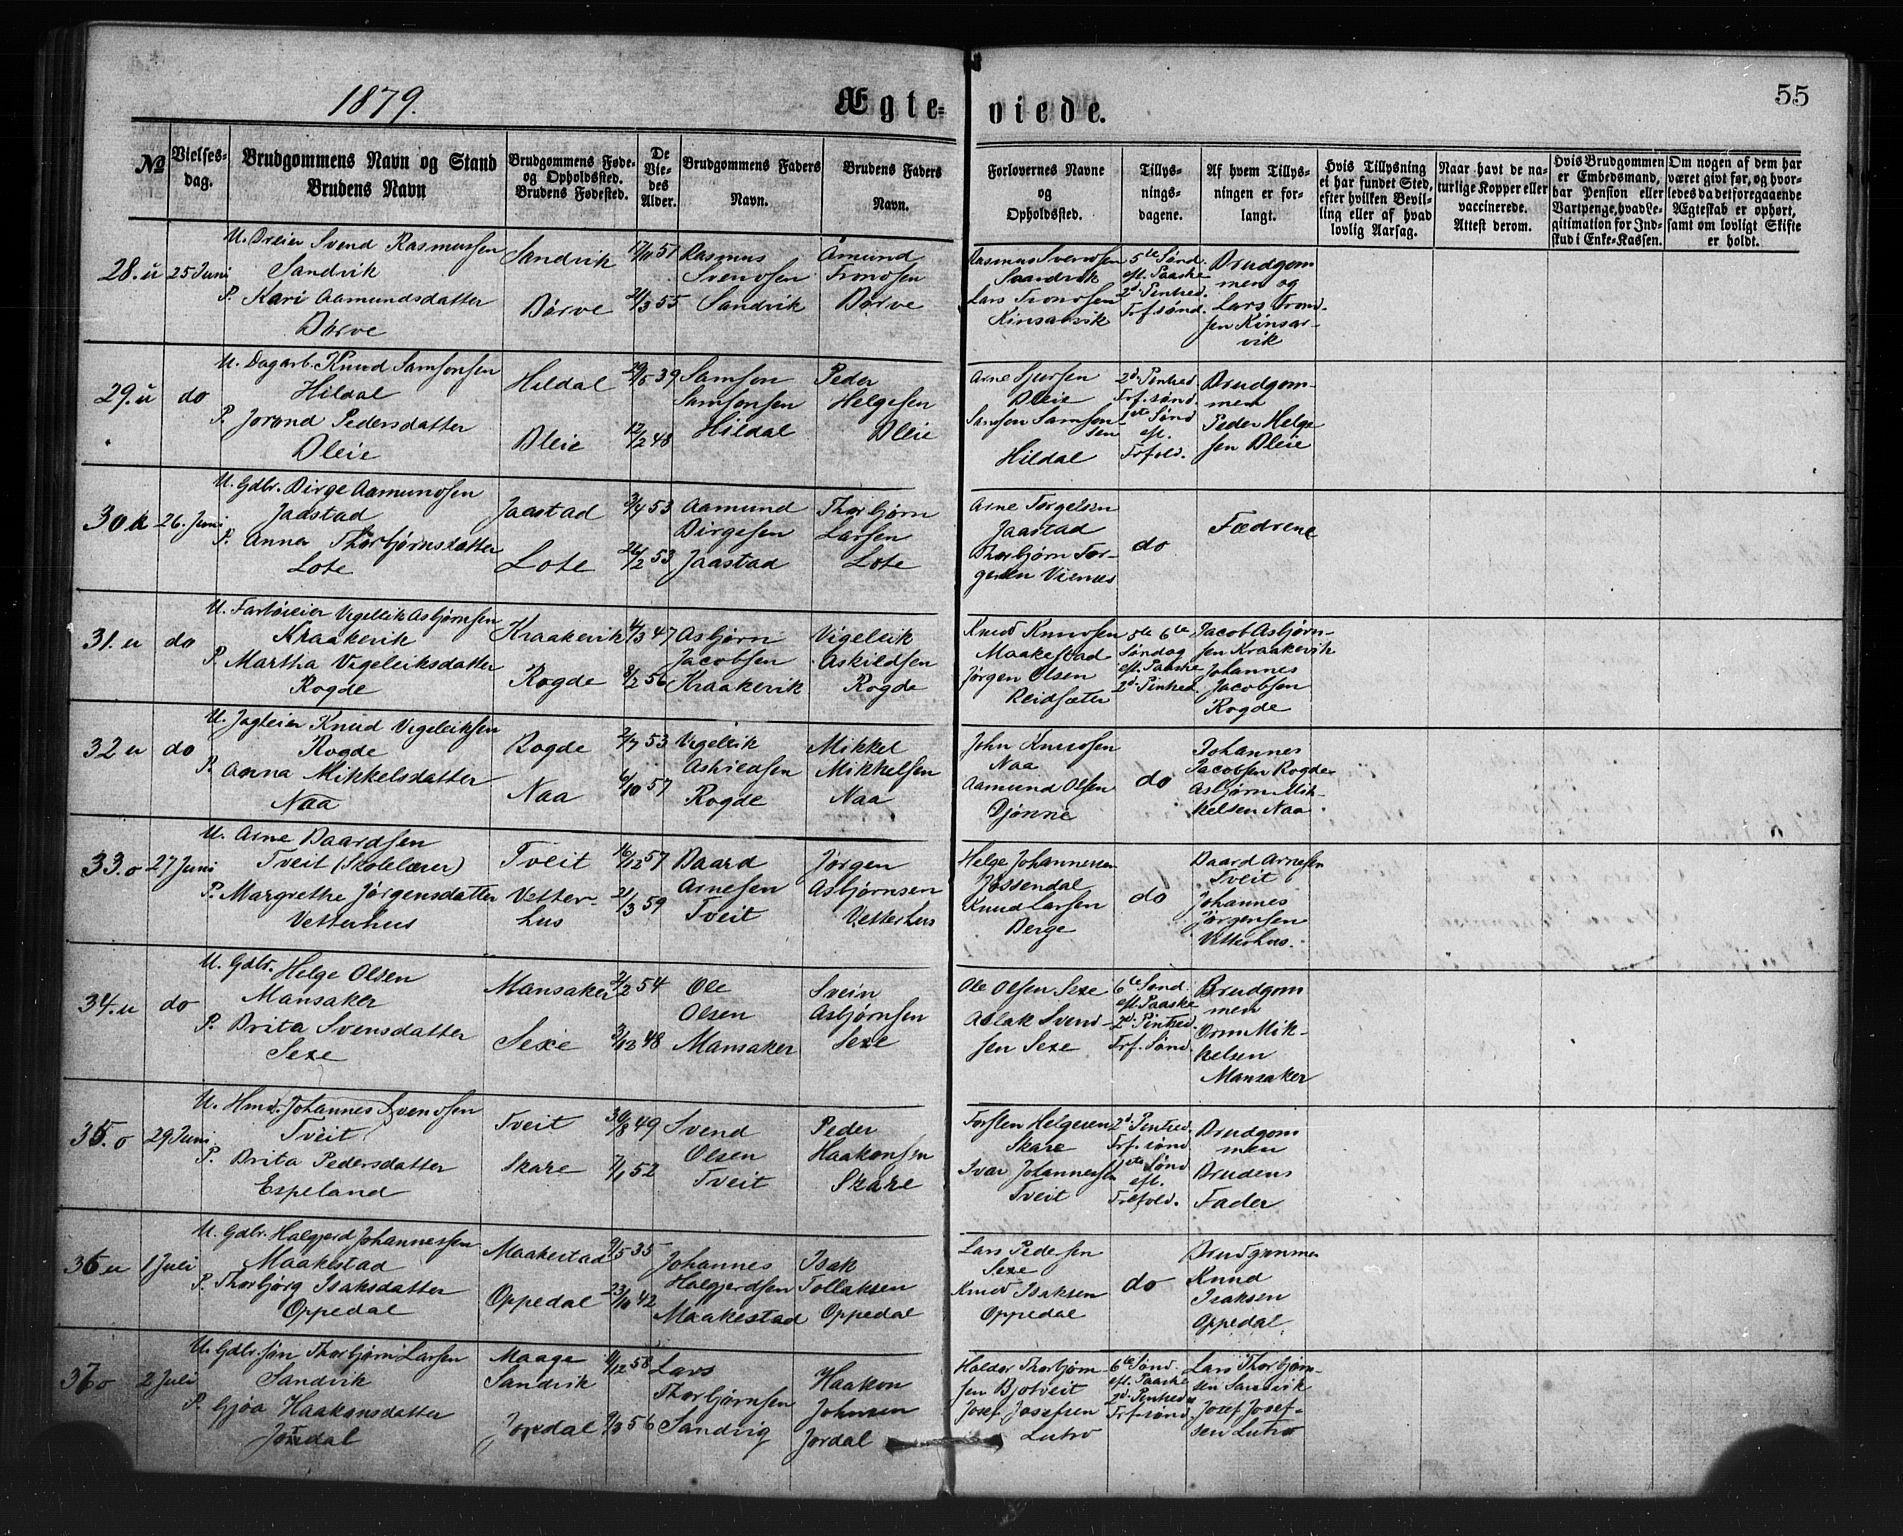 1879.
Ægteviede.
55
No
Vielsesdag.
Brudgommens Navn og Stand
Brudens Navn
Brudgommens Føde- og Opholdssted. Brudens Fødested.
De Viedes Alder.
Brudgommens Faders Navn.
Brudens Faders Navn.
Forlovernes Navne og Opholdssted.
Tillysningsdagene.
Af hvem Tillysningen er forlangt.
Hvis Tillysning ei har fundet Sted, efter hvilken Bevilling eller af hvad lovlig Aarsag.
Naar havt de naturlige Kopper eller vaccinerede. Attest derom.
Hvis Brudgommen er Embedsmand, har Pension eller Vartpenge, hvad Legitimation for Indskud i Enke-Kassen.
Om nogen af dem har været givt før, og hvorledes da det foregaaende Ægteskab er ophørt, samt om lovligt Skifte er holdt.
28. u
25 Juni
U. Dreier Svend Rasmussen
Sandvik
P. Kari Aamundsdatter
Børve
Sandvik
Børve
51
21/3 55
Rasmus
Svendsen
Sandvik
Amund
Trondsen
Børve
Rasmus Svendsen
Sandvik
Lars Trondsen
Kinsarvik
5te Sønd.
eft. Paaske
2d. Pintsed.
Trf. sønd.
Brudgom
men og
Lars Trond
sen Kinsar-
vik
29. u
do
U. Dagarb. Knud Samsonsen
Hildal
P. Jorond Pedersdatter
Bleie
Hildal
Bleie
29/5 39
12/2 48
Samson
Samsonsen
Hildal
Peder
Helgesen
Bleie
Arne Sjursen
Bleie
Samson Samson
sen
Hildal
2d. Pintsed.
Trf. sønd.
1ste Sønd
eft.
Trfold.
Brudgom-
men
Peder Helge
sen Bleie
30 u
26. Juni
U. Gdbr. Birge Aamundsen
Jaastad
P. Anna Thorbjørnsdatter
Lote
Jaastad
Lote
3/4 53
26/2 53
Aamund
Birgesen
Jaastad
Thorbjørn
Larsen
Lote
Arne Torgelsen
Jaastad
Thorbjørn Tor-
gersen Viernes
do
Fædrene
31. u
do
U. Fartøieier Vigeleik Asbjørnsen
Kraakevik
P. Martha Vigeleiksdatter
Rogde
Kraakevik
Rogde
4/3 47
8/2 56
Asbjørn
Jacobsen
Kraakevik
Vigeleik
Askildsen
Rogde
Knud Knudsen
Maakestad
Jørgen Olsen
Reidsæter
5te 6te
Søndag
eft. Paaske
2d. Pintsed.
Jacob Asbjørn-
sen Kraakevik
Johannes
Jacobsen
Rogde
32 u
do
U. Jagteier Knud Vigeleiksen
Rogde
P. Anna Mikkelsdatter
Naa
Rogde
Naa
2/7 53
6/10 57
Vigeleik
Askildsen
Rogde
Mikkel
Mikkelsen
Naa
John Knudsen
Naa
Aamund Olsen
Djønne
do
Johannes
Jacobsen Rogde
Asbjørn Mik-
kelsen Naa
33. o
27 Juni
U. Arne Baardsen
Tveit (Skolelærer)
P. Margrethe Jørgensdatter
Vetterhus
Tveit
Vetter-
hus
16/12 57
21/3 59
Baard
Arnesen
Tveit
Jørgen
Asbjørnsen
Vetterhus
Helge Johannessen
Jøssendal
Knud Larsen
Berge
do
Baard Arnesen
Tveit
Johannes
Jørgensen
Vetterhus.
34. u
do
U. Gdbr. Helge Olsen
Mansaker
P. Brita Svensdatter
Sexe
Mansaker
Sexe
2/2 54
3/12 48
Ole
Olsen
Mansaker
Svein
Asbjørnsen
Sexe
Ole Olsen Sexe
Aslak Svend-
sen Sexe
6te Sønd.
eft. Paaske
2d. Pintsed.
Trf. Sønd.
Brudgom
men
Orm Mik-
kelsen
Mansaker
35. o
29 Juni
U. Hmd. Johannes Svendsen
Tveit
P. Brita Pedersdatter
Espeland
Tveit
Skare
30/8 49
7/1 52
Svend
Olsen
Tveit
Peder
Haakonsen
Skare
Torsten Helgesen
Skare
Ivar Johannessen
Tveit
2d. Pintsed.
Trf. sønd
1ste Sønd
eft.
Trefold.
Brudgom
men
Brudens
Fader
36 u
1 Juli
U. Gdbr. Halgjerd Johannessen
Maakestad
P. Thorbjørg Isaksdatter
Oppedal
Maakestad
Oppedal
9/5 35
23/10 42
Johannes
Halgjerdsen
Maakestad
Isak
Tollaksen
Oppedal
Lars Pedersen
Sexe
Knud Isaksen
Oppedal
do
Brudgommen
Knud
Isaksen
Oppedal
37 o
2 Juli
U. Gdbr. søn Thorbjørn Larsen
Sandvik
P. Gjøa Haakonsdatter
Jordal
Maage
Sandvik
Jordal
58
56
Lars
Thorbjørnsen
Sandvig
Haakon
Johnsen
Jordal
Haldor Thorbjørn-
sen Bjotveit
Josef Josefsen
Lutro
6te Sønd.
eft. Paaske
2d. Pintsed.
Trf. sønd.
Lars Thorbjørn-
sen Sandvik
Josef Josef-
sen Lutro